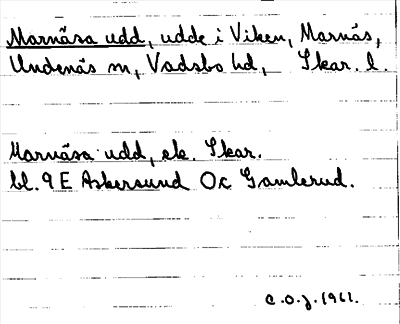 Marnäsa udd, udde i Viken, Marnäs,
Undenäs sn, Vadsbo hd, Skar. l.
Marnäsa udd, ek. Skar.
bl. 9 E Askersund Oc Gamlerud.
C.O.J. 1961.